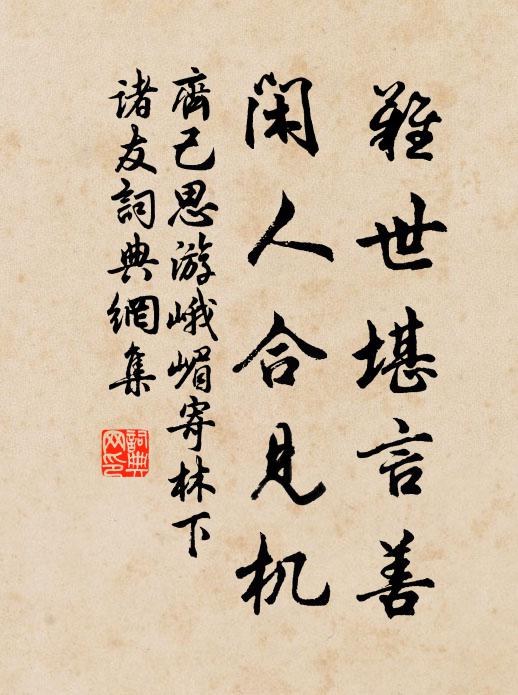 難世堪言善
閑人合見机
齊己思游峨嵋寄林下
諸友詞典網集
詞典
网印